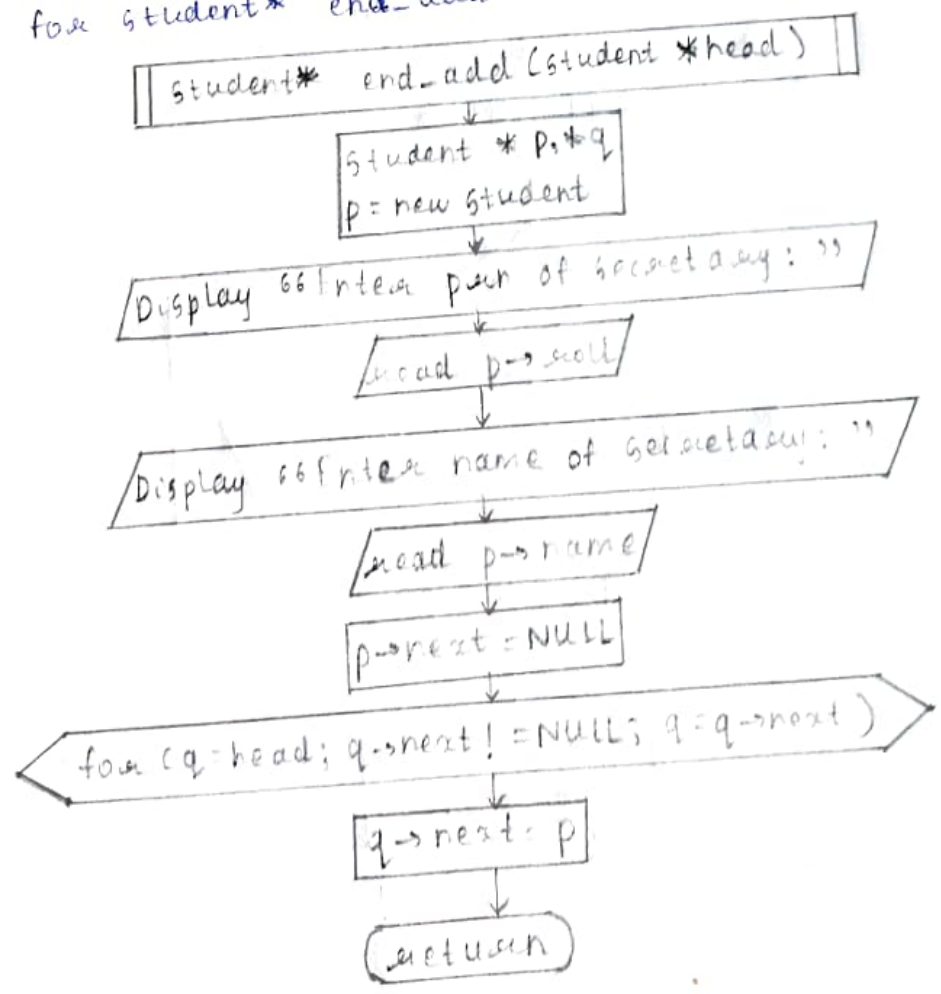 for student*
student* end_add (student *head)
student * p, *q
p = new student
Display "Enter prn of secretary: "
read p→roll
Display "Enter name of secretary: "
read p→name
p→next = NULL
for (q = head; q→next! = NULL; q = q→next)
q→next = p
return